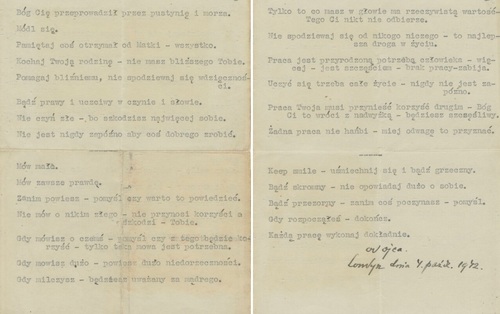 Bóg Cię przeprowadził przez pustynię i morza.
Módl się.
Pamiętaj coś otrzymał od Matki - wszystko.
Kochaj Twoją rodzinę - nie masz bliższego Tobie.
Pomagaj bliźniemu, nie spodziewaj się wdzięczności.
Bądź prawy i uczciwy w czynie i słowie.
Nie czyń zła - bo szkodzisz najwięcej sobie.
Nie jest nigdy zapóźno aby coś dobrego zrobić.
Mów mało.
Mów zawsze prawdę.
Zanim powiesz - pomyśl czy warto to powiedzieć.
Nie mów o nikim złego - nie przynosi korzyści a
szkodzi - Tobie.
Gdy mówisz o czemś - pomyśl czy z tego będzie ko-
rzyść - tylko taka mowa jest potrzebna.
Gdy mówisz dużo - powiesz dużo niedorzeczności.
Gdy milczysz - będziesz uważany za mądrego.
Tylko to co masz w głowie ma rzeczywistą wartość-
Tego Ci nikt nie odbierze.
Nie spodziewaj się od nikogo niczego - to najlep-
sza droga w życiu.
Praca jest przyrodzoną potrzebą człowieka - wię-
cej - jest szczęściem - brak pracy-zabija.
Uczyć się trzeba całe życie - nigdy nie jest za-
późno.
Praca Twoja musi przynieść korzyść drugim - Bóg
Ci to wróci z nadwyżką - będziesz szczęśliwy.
Żadna praca nie hańbi - miej odwagę to przyznać.
Keep smile - uśmiechnij się i bądź grzeczny.
Bądź skromny - nie opowiadaj dużo o sobie.
Bądź przezorny - zanim coś poczynasz - pomyśl.
Gdy rozpocząłeś - dokończ.
Każdą pracę wykonaj dokładnie.
od ojca.
Londyn dnia 4. paźdz. 1972.